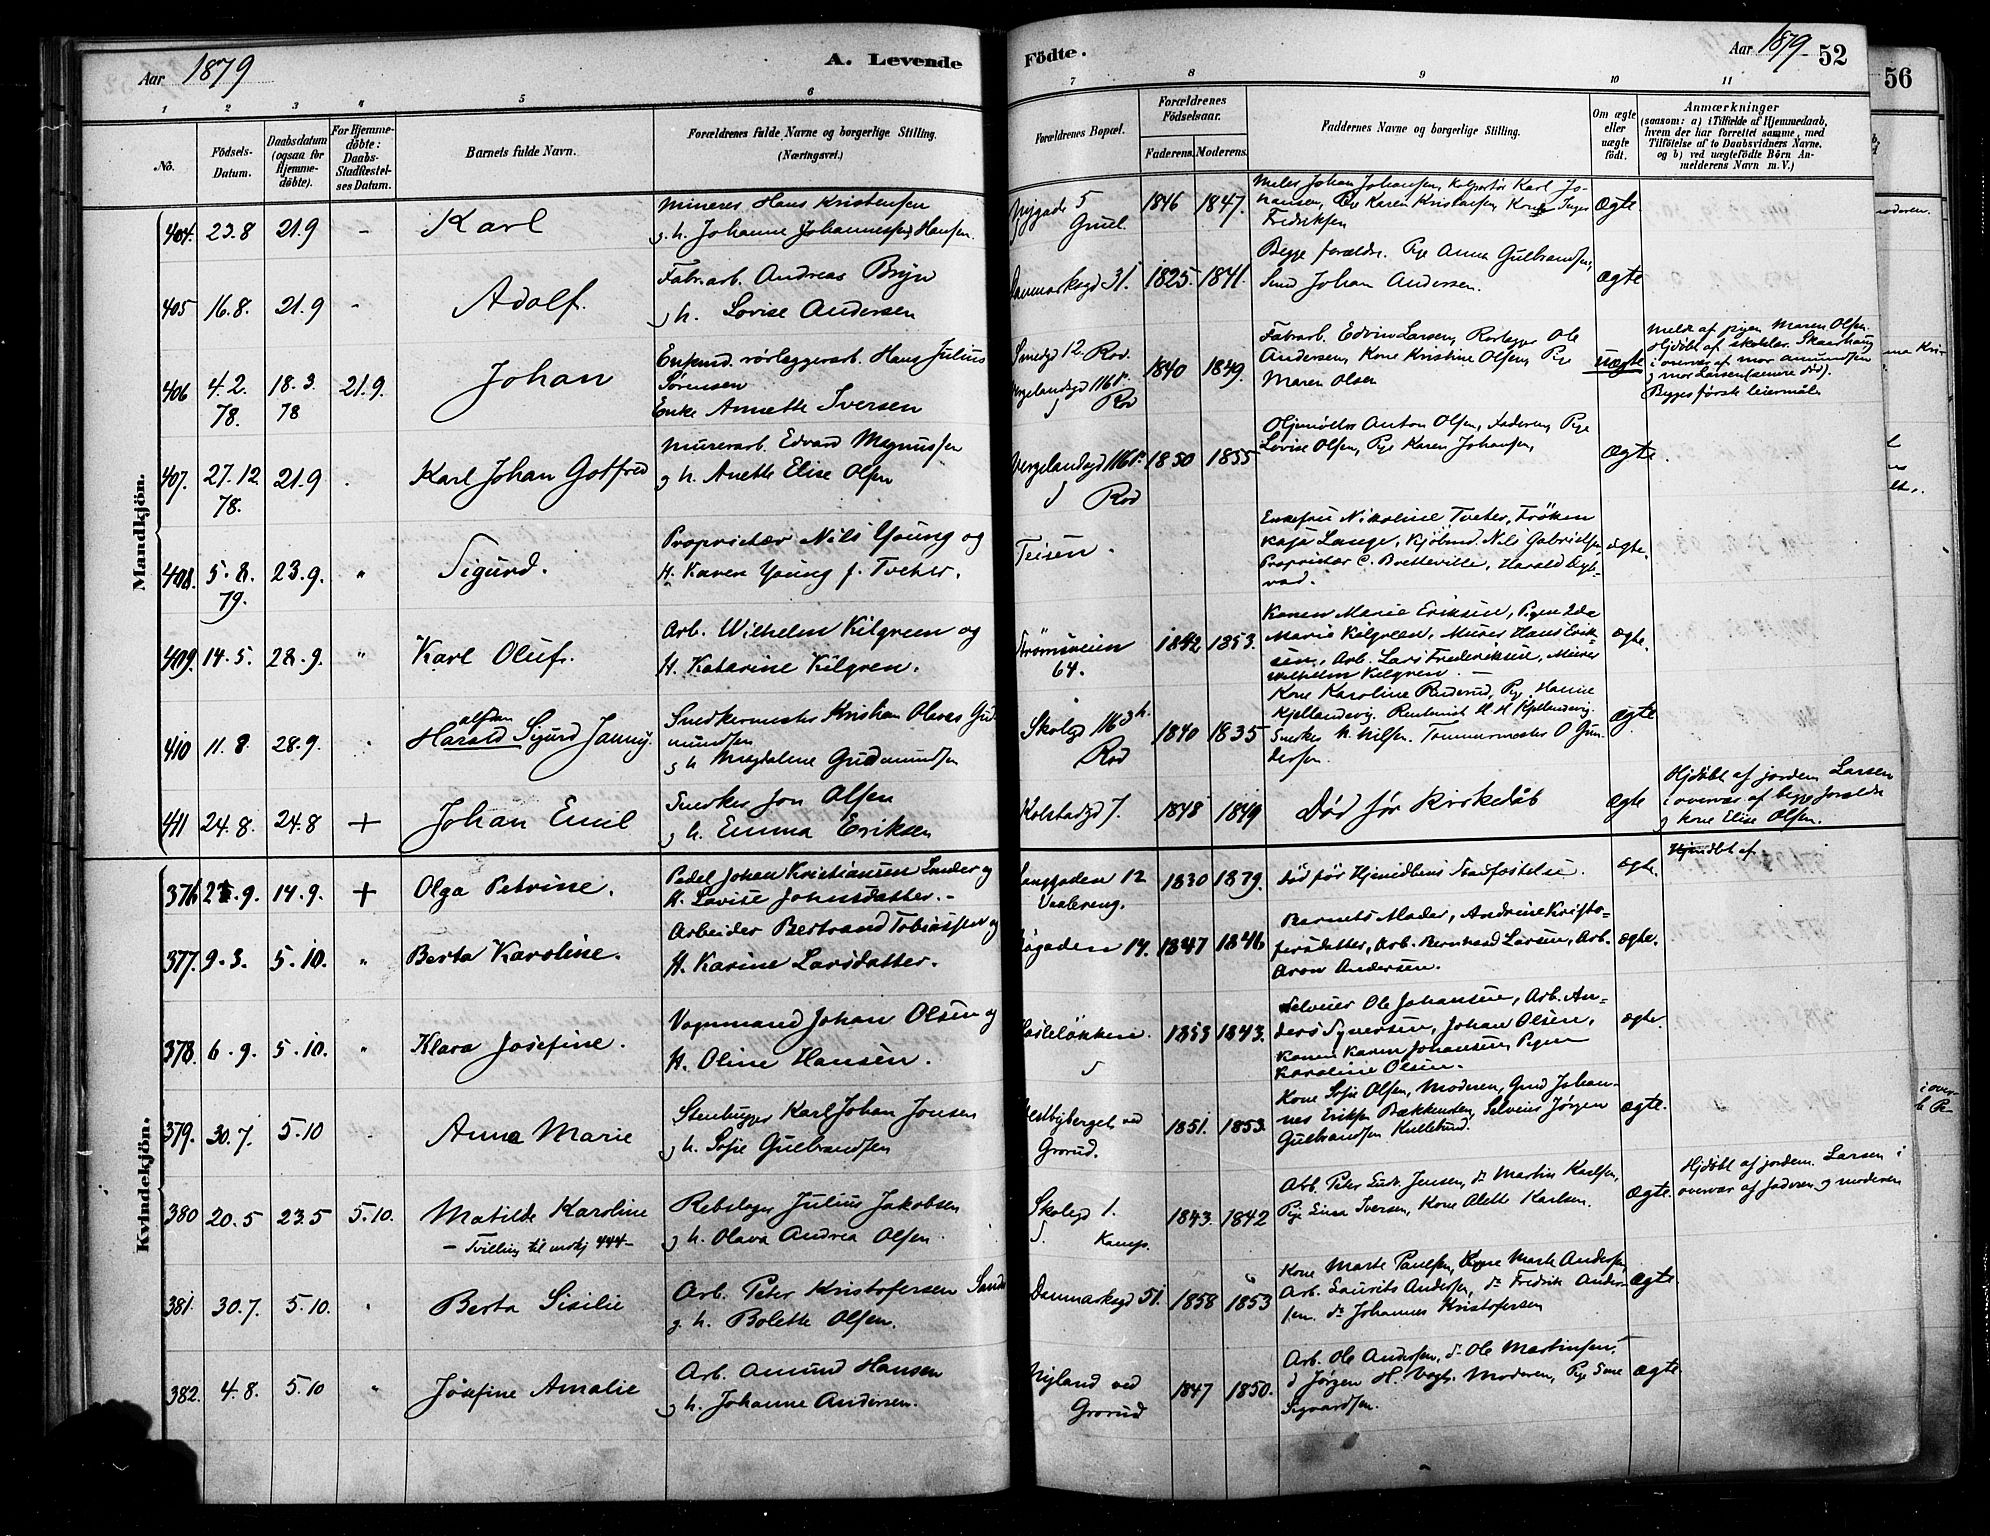 Aar 1879
A. Levende
Födte.
Aar 1879.
52
56
1 2 3 4 5 6 7 8 9 10 11
No.
Födsels-Datum.
Daabsdatum (ogsaa for Hjemmedöbte).
For Hjemmedöbte: Daabs-Stadfæstelses Datum.
Barnets fulde Navn.
Forældrenes fulde Navne og borgerlige Stilling.
(Næringsvei.)
Forældrenes Bopæl.
Forældrenes Födselsaar.
Faderens. Moderens.
Faddernes Navne og borgerlige Stilling.
Om ægte eller uægte födt.
Anmærkninger
(saasom: a) i Tilfælde af Hjemmedaab,
hvem der har forrettet samme, med
Tilföielse af to Daabsvidners Navne,
og b) ved uægtefödte Börn Anmelderens Navn m. V.)
Mandkjön.
404. 23.8 21.9 - Karl
Minerer Hans Kristensen
g. h. Johanne Johannessen Hansen.
Nygade 5 1846 1847.
Johan Johansen, Kolportør Karl Johansen, Pge Karen Kristensen, Kone
Fredriksen
ægte
405 16.8. 21.9 - Adolf.
Fabrarb. Andreas Bryn
g h. Lovise Andersen
Danmarksgd 31. 1825 1841.
Begge forældr. Pge Anna Gulbrandsen,
Smd Johan Andersen.
ægte
406 4.2. 78. 18.3. 78 21.9. Johan
Enkmd. rørlæggerarb. Hans Julius
Sørensen
Enke Annette Iversen
Smedgd 12. Rod.
Vergelandsgd 116 Rod
1840 1849.
Fabrarb. Edvin Larsen, Rørlegger Ole
Andersen, Kone Kristine Olsen, Pge
Maren Olsen
uægte
Meldt af pigen Maren Olsen.
Hjdöbt af skoleler. Skaarhaug
i overvær af mor Amundsen
g mor Larsen (senere død).
Begges første leiermål.
407. 27.12 78. 21.9 . Karl Johan Gotfred
Murerarb. Edvard Magnussen
g h. Anette Elise Olsen
Vergelandsgd 116 Rod
1850 1855
Anton Olsen, Faderen, Pge
Lovise Olsen, Pge Karen Johansen,
ægte.
408. 5.8. 79. 23.9. " Sigurd.
Proprietær Nils Young og
H. Karen Young f. Tveter.
Teisen.
Enkefru Nikoline Tveter, Frøken
Kaja Lange, Kjøbmd. Nils Gabrielsen,
Proprietær C. Bretteville, Harald
ægte.
409. 14.5. 28.9. " Karl Oluf.
Arb. Wilhelm Kilgreen og
H. Katarine Kilgren.
Strømsveien 64.
1842 1853.
Konen Marie Eriksen, Pigen Ida
Marie Kilgreen, Murer Hans Eriksen, Arb. Lars Frederiksen, Murer
Wilhelm Kilgreen. -
ægte.
410 11.8. 28.9. " Harald Sigurd
Halfdan
Snedkermester Kristian Olaves Gudmundsen
g h Magdalene Gudmundsen
Skolegd Rod
1840 1835
Kone Karoline Ruderud, Pge. Hanne
Kjellandsvig. Rentenist H H Kjellandsvig.
Snedker N. Nilsen. Tømmermester O Gundersen.
ægte.
411 24.8. 24.8 + Johan Emil
Snedker Jon Olsen
g h. Emma Eriksen
Kolstadgd 7. 1848 1849
Död før Kirkedåb
ægte
Hjdöbt af jordem. Larsen
i overvær af begge foreldr
g kone Elise Olsen.
Kvindekjön.
376 9. 14.9. + Olga Petrine.
Johan Kristiansen Sander og
H. Lovise Johnsdatter. -
Langgaden 12 Vaalereng.
1830 1879.
død før Hjemdbens Stadfæstelse.
ægte.
Hjemdöbt af
377. 9.3. 5.10. " Berta Karoline.
Arbeider Bertrand Tobiassen og
H. Karine Larsdatter.
14. 1847 1846
Barnets Moder, Andrine Kristofersdatter, Arb. Bernhard Larsen, Arb.
Aron Andersen.
ægte.
378. 6.9. 5.10. " Klara Josefine.
Vognmand Johan Olsen og
H. Oline Hansen.
Hasleløkken. 1853 1843.
Selveier Ole Johansen, Arb. Anders Synersen, Johan Olsen,
Konen Karen Johansen, Pigen
Karoline Olsen.
ægte.
379. 30.7. 5.10 - Anna Marie
Stenhugger Karl Johan Jonsen
g h. Sofie Gulbrandsen
Vestbyberget ved Grorud.
1851. 1853.
Kone Sofie Olsen, Moderen, Gmd Johannes Eriksen Bækkenden, Selveier Jørgen
Gulbrandsen Kullebund.
ægte.
380 20.5 23.5 5.10. Matilde Karoline
- Tvilling til mdkj 444 -
Rebslager Julius Jakobsen
g h. Olava Andrea Olsen.
Skolegd 1. Kamp.
1843. 1842
Arb. Peter Ludv. Jensen, do Martin Karlsen,
Pge Lina Iversen, Kone Olette Karlsen.
ægte.
Hjdöbt af jordem. Larsen i
overvær af faderen g moderen
381. 30.7. 5.10. " Berta Sisilie
Arb. Peter Kristofersen Sande
g. h. Bolette Olsen.
Danmarksgd 51. 1858 1853
Kone Marte Paulsen, Kone Marte Andersen,
Arb. Laurits Andersen, do Fredrik Andersen. do Johannes Kristofersen
ægte
382. 4.8. 5.10 " Josefine Amalie
Arb. Amund Hansen
g h. Johanne Andersen.
Nyland ved Grorud
1847 1850.
Arb. Ole Andersen, do Ole Martinsen,
d Jørgen H. Vogt. Moderen, Pge Sigvardsen.
ægte.